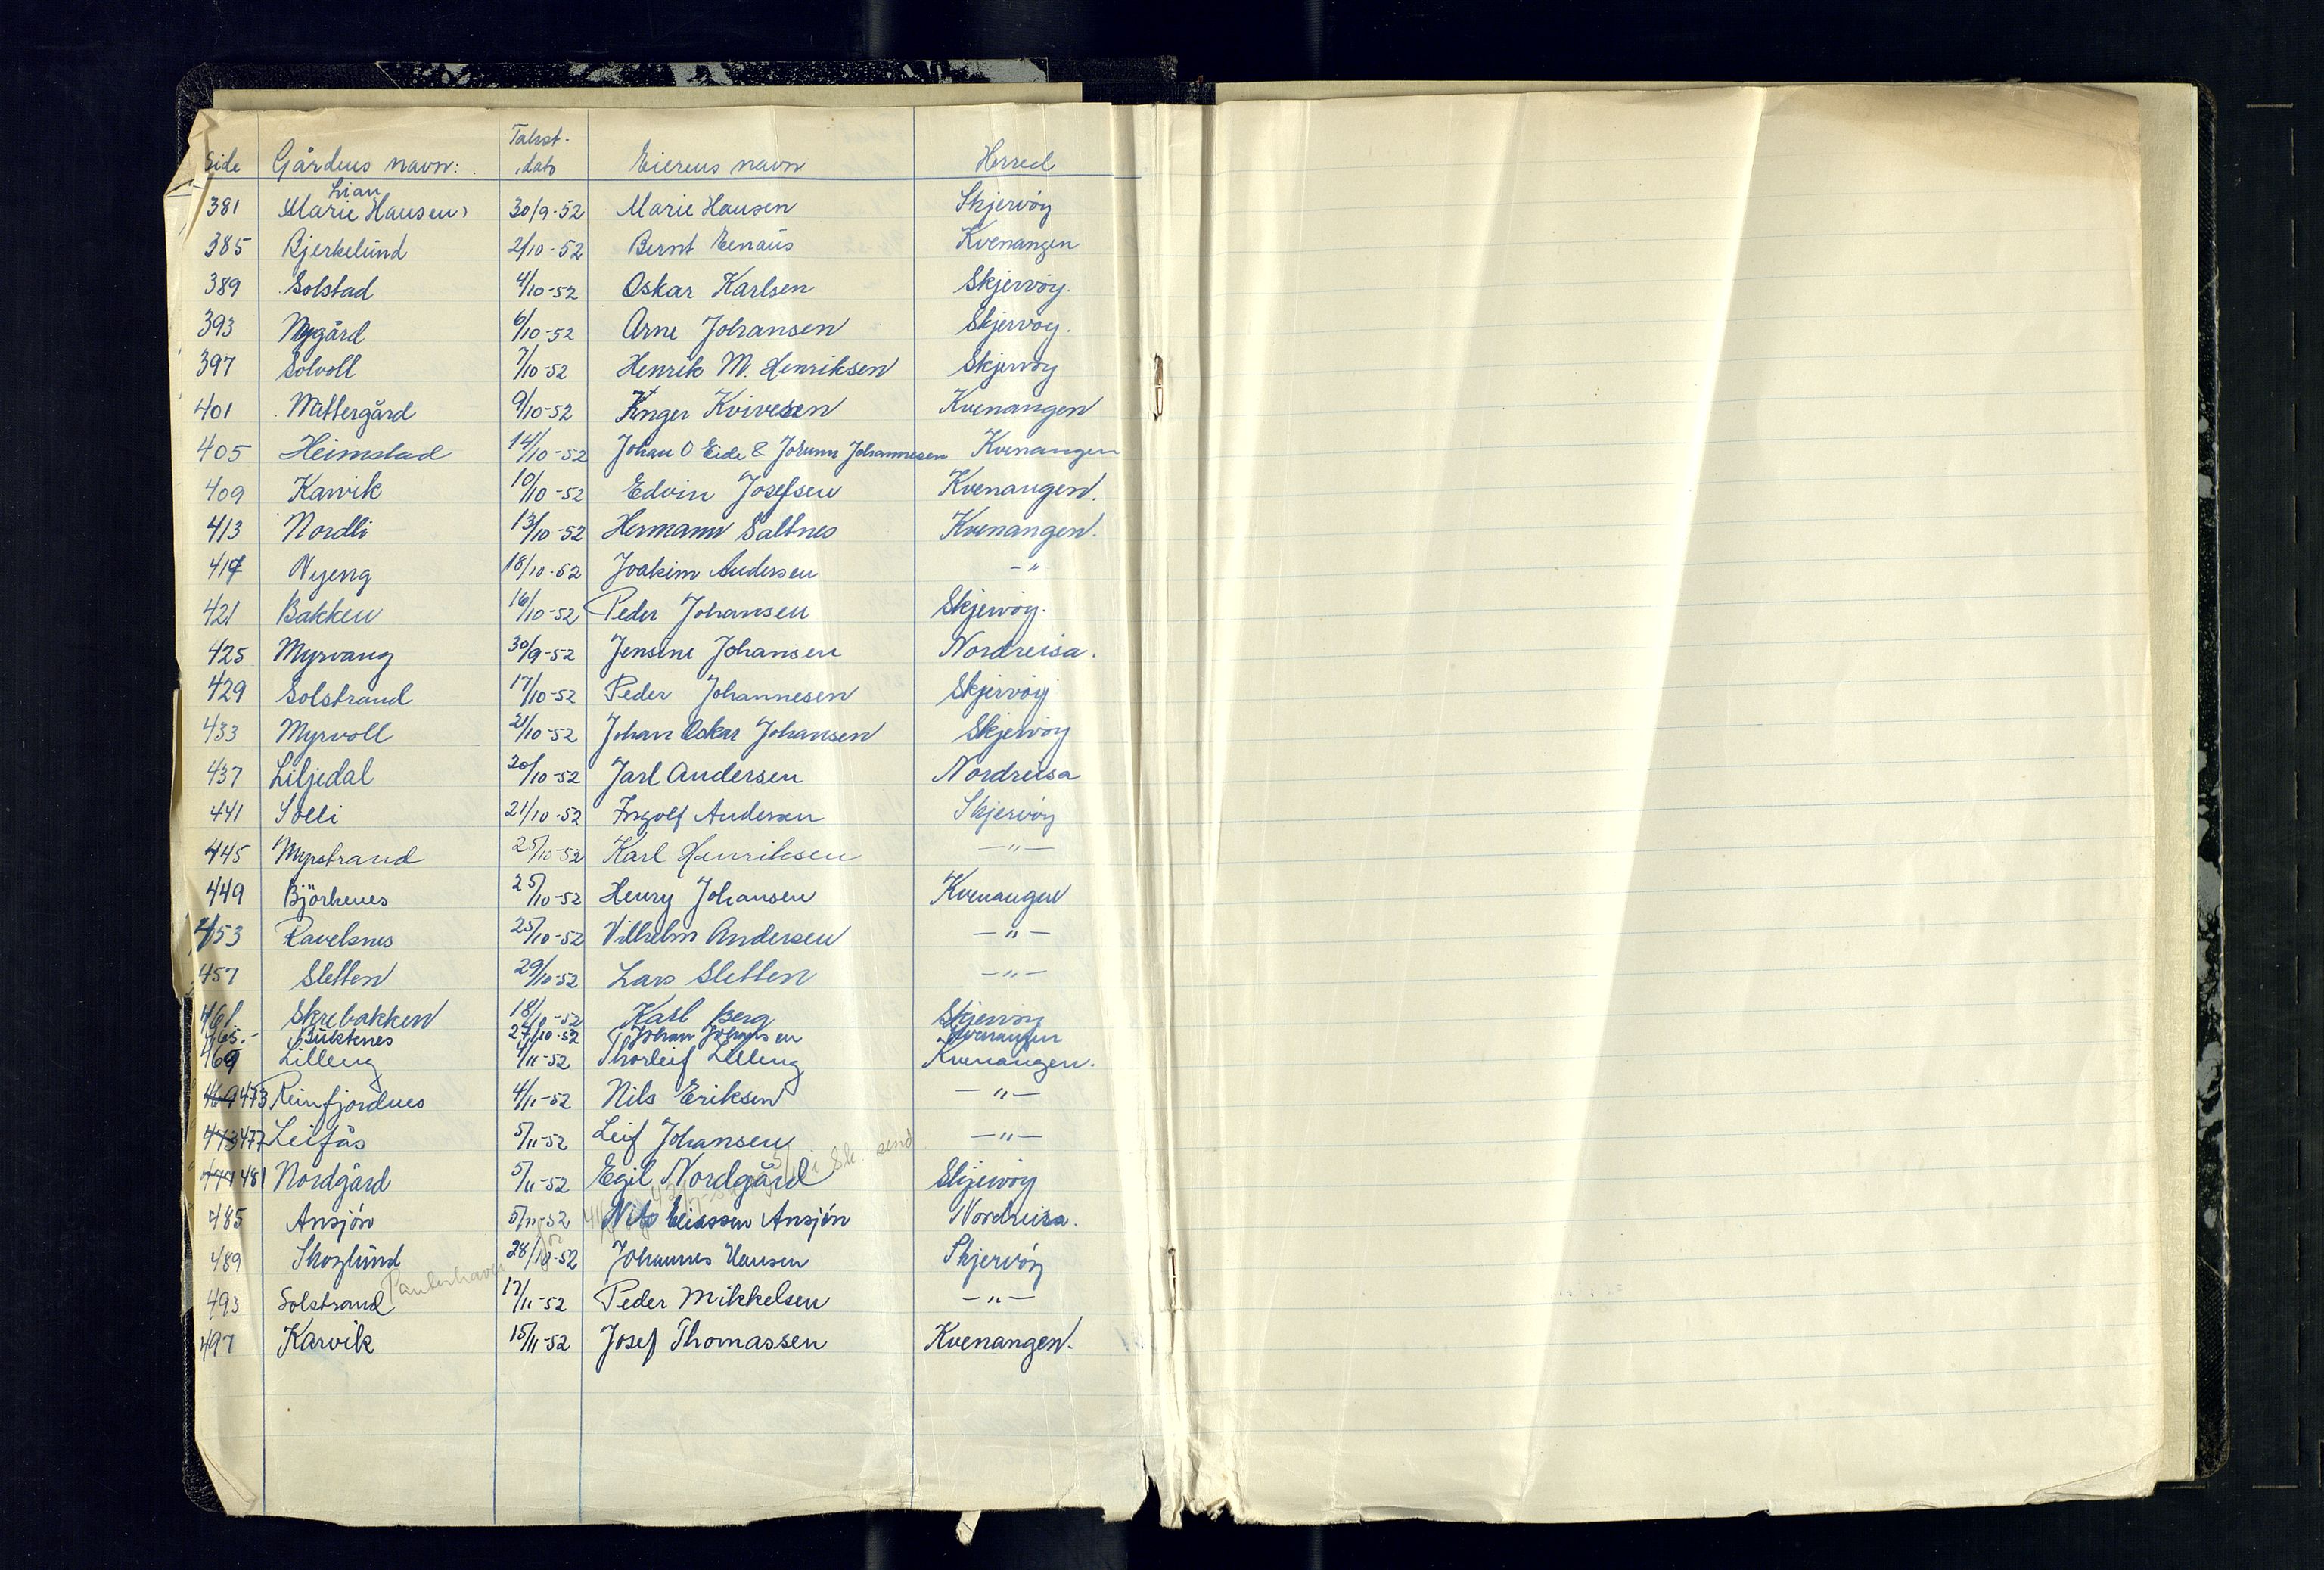 Side Gårdens navn: Takst-dato Eierens navn Herred
Lian
381 Marie Hansen 30/9-52 Marie Hansen Skjervöy
385 Bjerkelund 2/10-52 Bernt Kvenangen
389 Solstad 4/10-52 Oskar Karlsen Skjervöy.
393 Nygård 6/10-52 Arne Johansen Skjervöy.
397 Solvoll 7/10-52 Henrik M. Henriksen Skjervöy
401 Mittergård 9/10-52 Inger Kvivesen Kvenangen
405 Heimstad 14/10-52 Johan O Eide & Jorunn Johannesen Kvenangen
409 Karvik 10/10-52 Edvin Josefsen Kvenangen.
413 Nordli 13/10-52 Hermann Saltnes Kvenangen.
417 Nyeng 18/10-52 Joakim Andersen -"
421 Bakken 16/10-52 Peder Johansen Skjervöy.
425 Myrvang 30/9-52 Jensine Johansen Nordreisa.
429 Solstrand 17/10-52 Peder Johannesen Skjervöy
433 Myrvoll 21/10-52 Johan Oskar Johansen Skjervöy
437 Liljedal 20/10-52 Jarl Andersen Nordreisa
441 Solli 21/10-52 Ingolf Andersen Skjervöy
445 Myrstrand 25/10-52 Karl Henriksen -"-
449 Björkenes 25/10-52 Henry Johansen Kvenangen
453 Ravelsnes 25/10-52 Vilhelm Andersen -"-
457 Sletten 29/10-52 Lars Sletten -"-
461 Skrebakken 18/10-52 Karl Berg Skjervöy
465.- Buktenes 27/10-52 Johan Johansen Kvenangen
469 Lilleng 4/11-52 Thorleif Lilleng Kvenangen.
469 473 Reinfjordnes 4/11-52 Nils Eriksen -"-
473 477 Leifås 5/11-52 Leif Johansen -"-
477 481 Nordgård 5/11-52 Egil Nordgård Skjervöy
485 Ansjön 5/11-52 Nils Eliassen Ansjön Nordreisa.
489 Skoglund 28/10-52 Johannes Hansen Skjervöy
493 Solstrand 17/11-52 Peder Mikkelsen -"-
497 Karvik 15/11-52 Josef Thomassen Kvenangen.